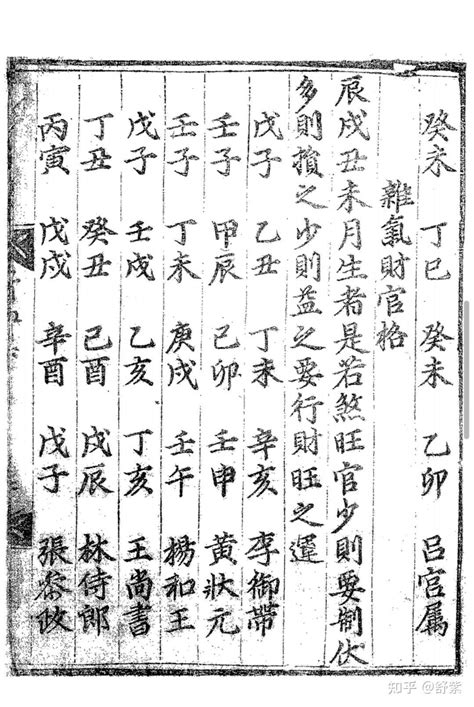 癸未 丁巳 癸未 乙卯 吕官属
雜氣財官格
辰戌丑未月生者是若煞旺官少則要制伏
多則損之少則益之要行財旺之運
戊子 乙丑 丁未 辛亥 李御帶
壬子 甲辰 己卯 壬申 黃狀元
壬子 丁未 庚戌 壬午 楊和王
戊子 壬戌 乙亥 丁亥 王尚書
丁丑 癸丑 己酉 戊辰 林侍郎
丙寅 戊戌 辛酉 戊子 張叅政
知乎 @舒紫